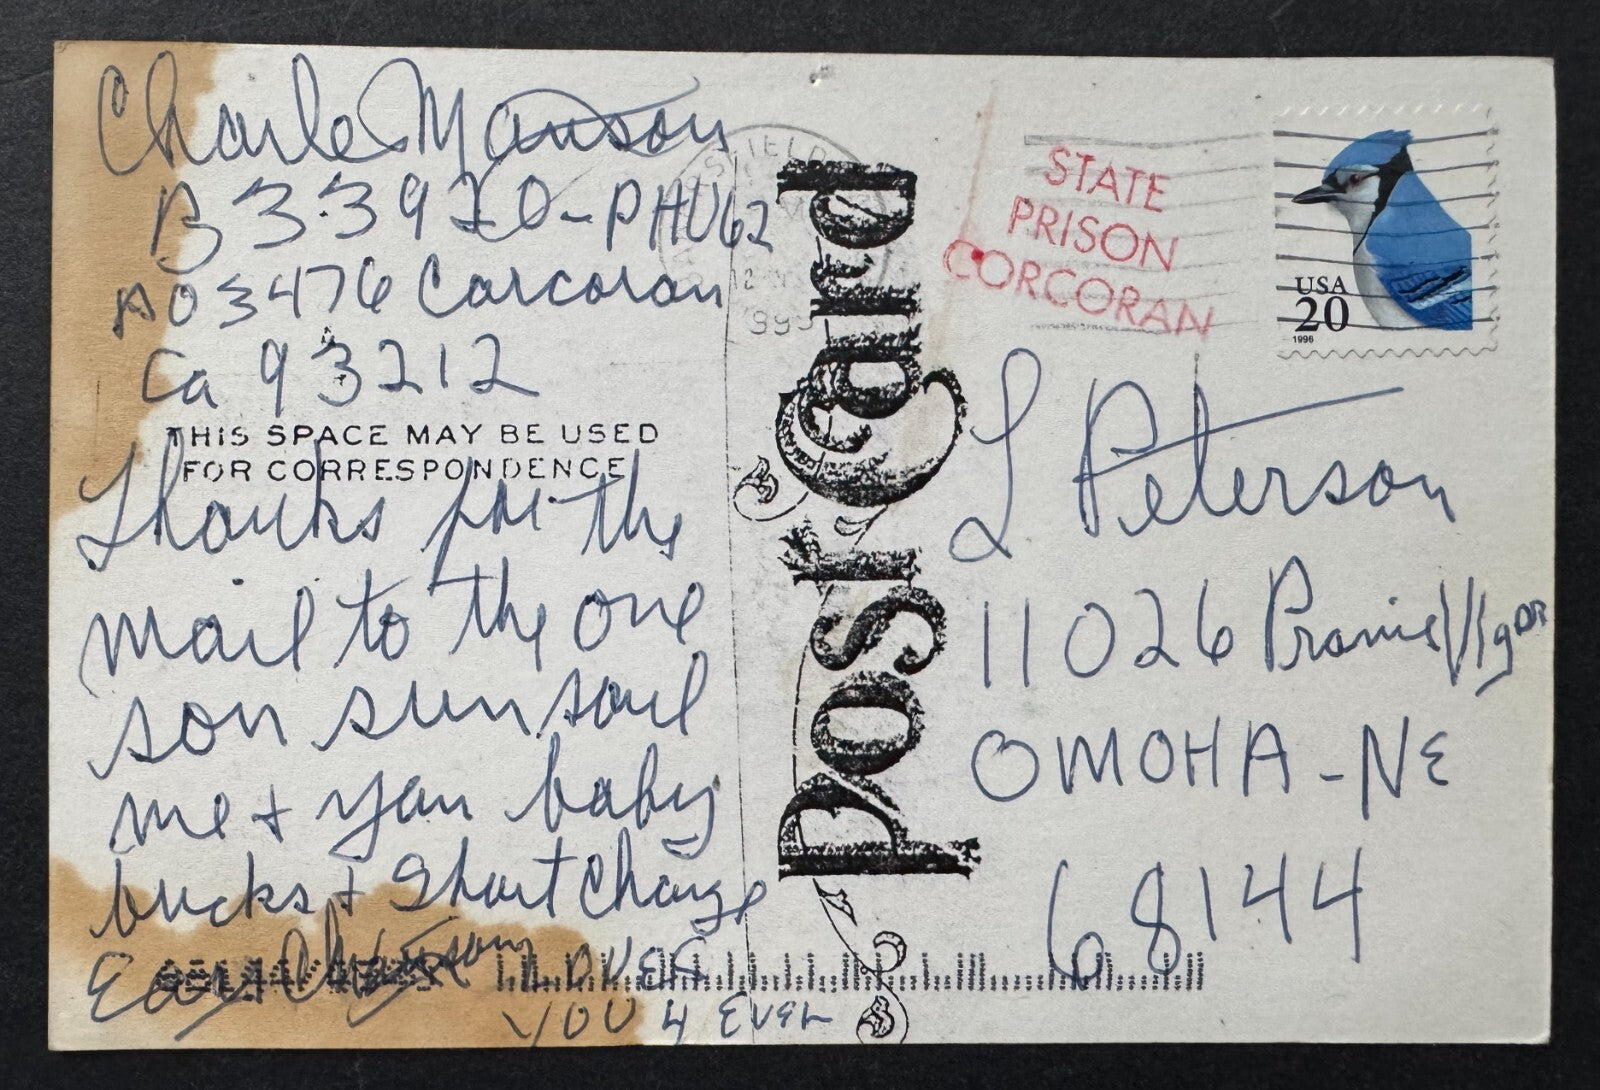 Charles Manson
B 33920-PHU62
PO 3476 Corcoran
Ca 93212
THIS SPACE MAY BE USED
FOR CORRESPONDENCE
Thanks for the
mail to the one
son sun soul
me + you baby
bucks + Short Change
Easy
LOVES
YOU 4 EVER
Post Card
STATE
PRISON
CORCORAN
USA
20
1996
L Peterson
11026 Prairie
OMOHA - NE
68144